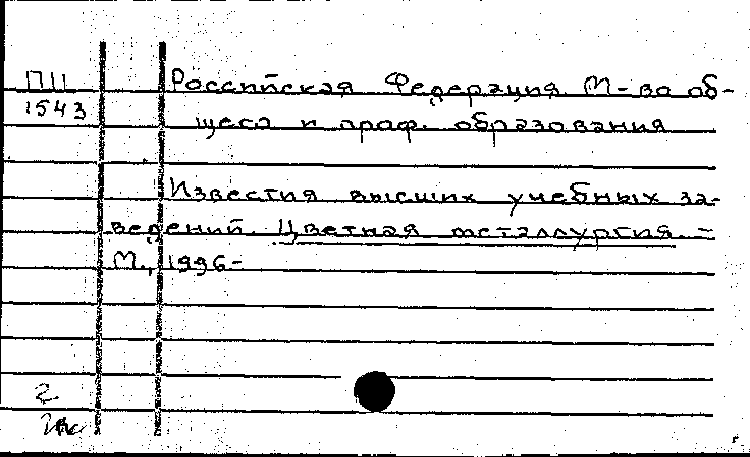 П11 Российская Федерация. М-во об-
1543 щего и проф. образования
Известия высших учебных за-
ведений. Цветная металлургия. –
М., 1996-
2